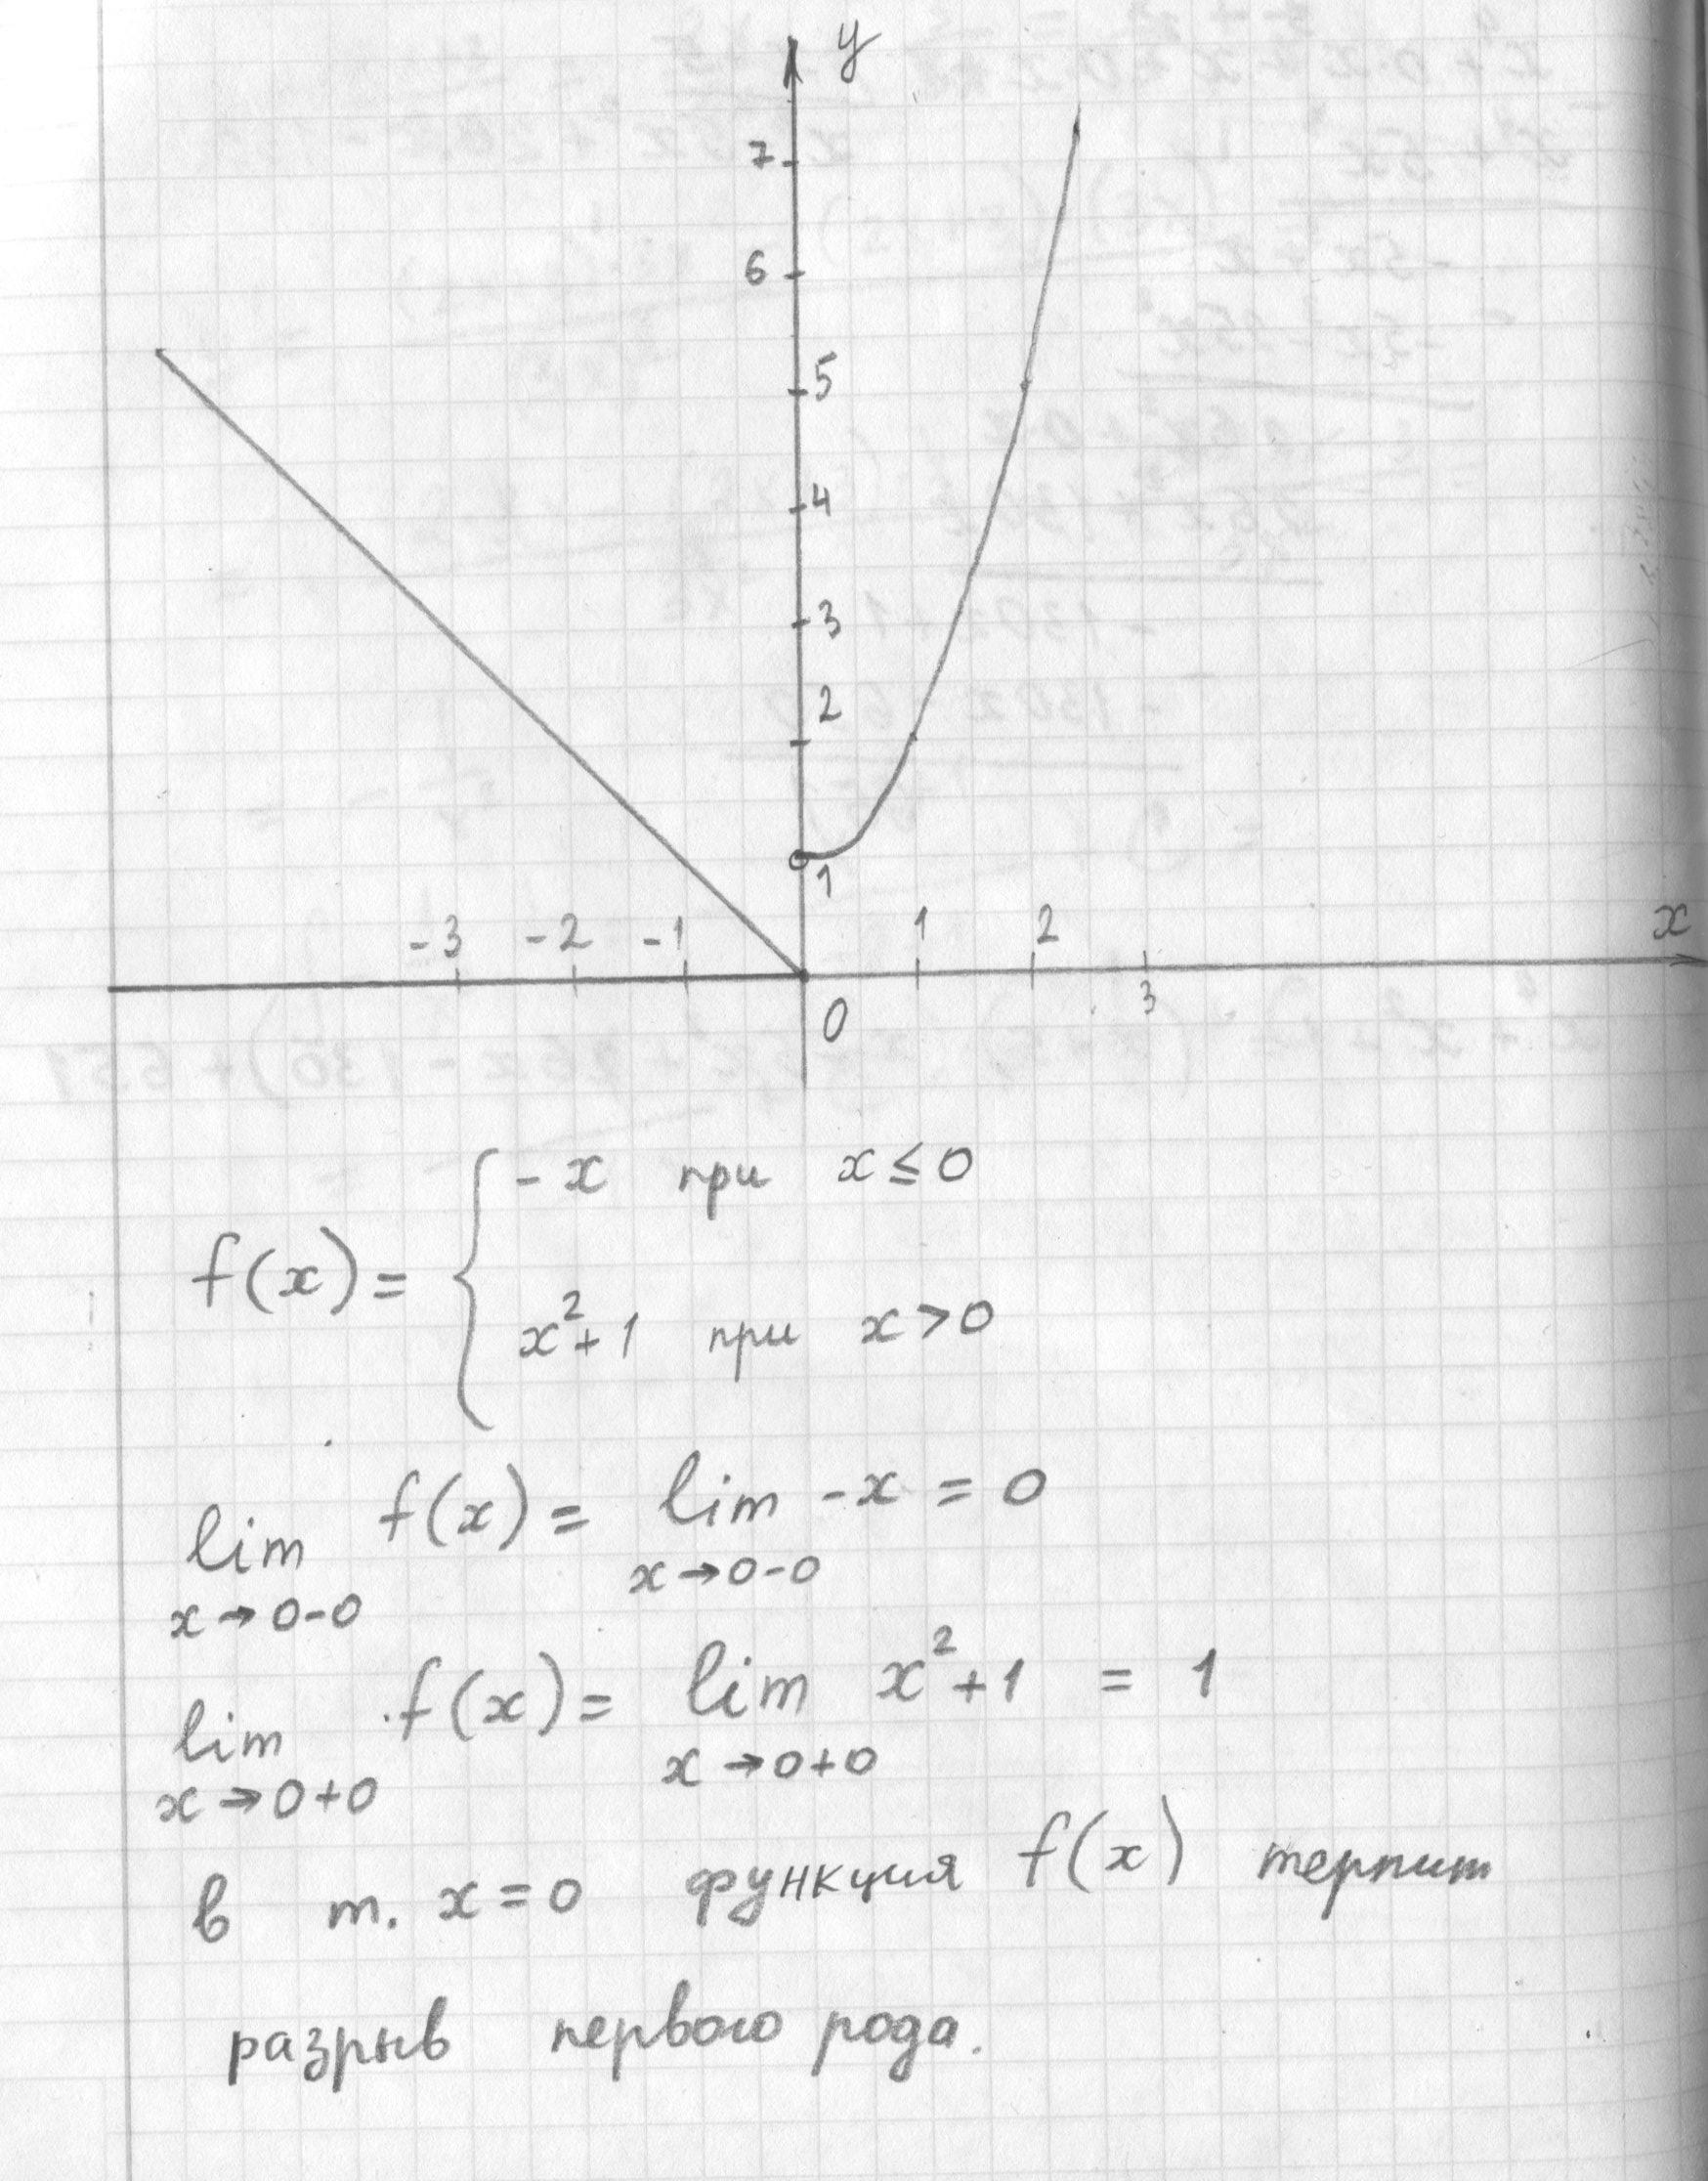 y
7
6
5
4
3
2
1
-3 -2 -1 1 2 x
0 3
f(x) = { -x при x ≤ 0
x²+1 при x > 0
lim f(x) = lim -x = 0
x→0-0 x→0-0
lim f(x) = lim x²+1 = 1
x→0+0 x→0+0
в т. x=0 функция f(x) терпит
разрыв первого рода.